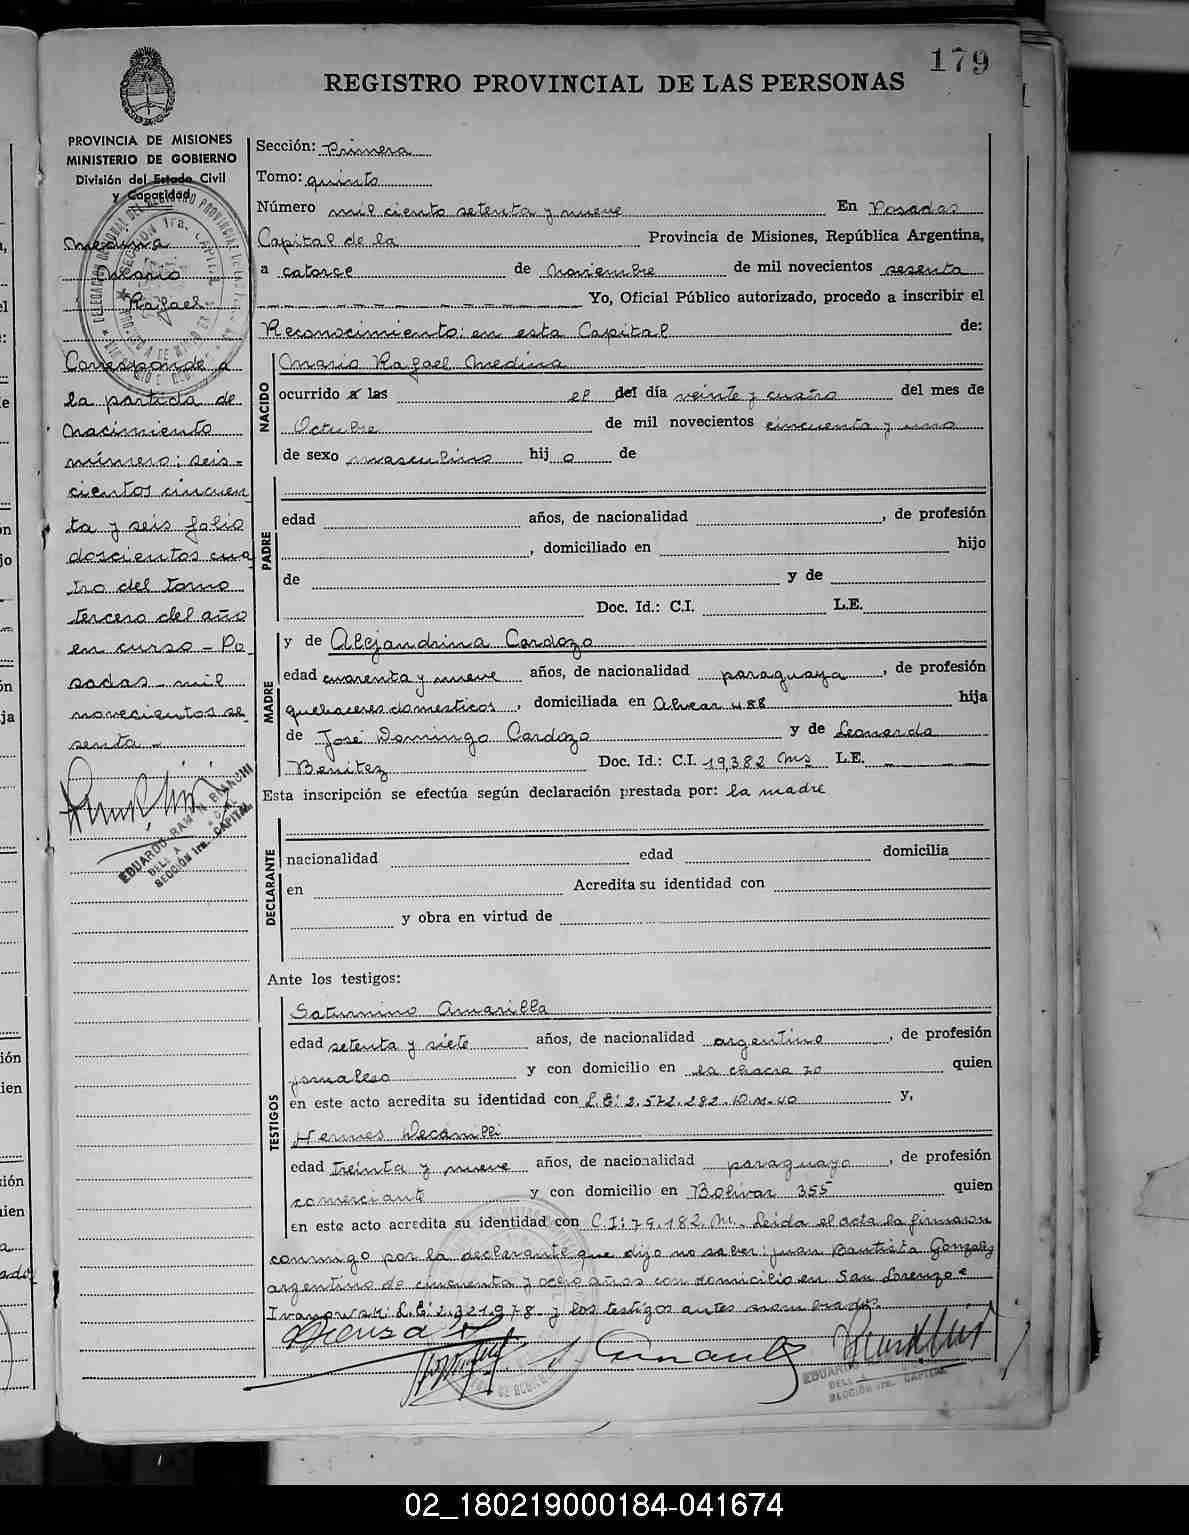 179
REGISTRO PROVINCIAL DE LAS PERSONAS
PROVINCIA DE MISIONES
MINISTERIO DE GOBIERNO
División del Estado Civil
y Capacidad
Medina
Mario
Rafael
Corresponde a
la partida de
nacimiento
número: seis-
cientos cincuen
ta y seis folio
doscientos cua
tro del tomo
tercero del año
en curso - Po
sadas - mil
novecientos se
senta -
EDUARDO RAMON BIANCHI
SECCIÓN 1ra. CAPITAL
Sección: Primera
Tomo: quinto
Número mil ciento setenta y nueve En Posadas
Capital de la Provincia de Misiones, República Argentina,
a catorce de Noviembre de mil novecientos sesenta
Yo, Oficial Público autorizado, procedo a inscribir el
Reconocimiento: en esta Capital de:
NACIDO
Mario Rafael Medina
ocurrido a las el del día veinte y cuatro del mes de
Octubre de mil novecientos cincuenta y uno
de sexo masculino hijo de
PADRE
edad años, de nacionalidad , de profesión
, domiciliado en hijo
de y de
Doc. Id.: C.I. L.E.
MADRE
y de Alejandrina Cardozo
edad cuarenta y nueve años, de nacionalidad paraguaya, de profesión
quehaceres domesticos, domiciliada en Alvear 488 hija
de José Domingo Cardozo y de Leonarda
Benitez Doc. Id.: C.I. 19,382 Ms L.E.
Esta inscripción se efectúa según declaración prestada por: la madre
DECLARANTE
nacionalidad edad domicilia
en Acredita su identidad con
y obra en virtud de
Ante los testigos:
TESTIGOS
Saturnino Amarilla
edad setenta y siete años, de nacionalidad argentino, de profesión
jornalero y con domicilio en la chacra 70 quien
en este acto acredita su identidad con L.E: 2.572.282. D.M.40 y,
Hermes Decamilli
edad treinta y nueve años, de nacionalidad paraguayo, de profesión
comerciante y con domicilio en Bolivar 355 quien
en este acto acredita su identidad con C.I: 79.182. M. Leida el acta la firmaron
conmigo por la declarante que dijo no saber: Juan Bautista Gonzalez
argentino de cincuenta y ocho años con domicilio en San Lorenzo e
Ivanowski L.E: 2,321978 y los testigos antes nombrados.
SECCIÓN 1ra. CAPITAL
02_180219000184-041674